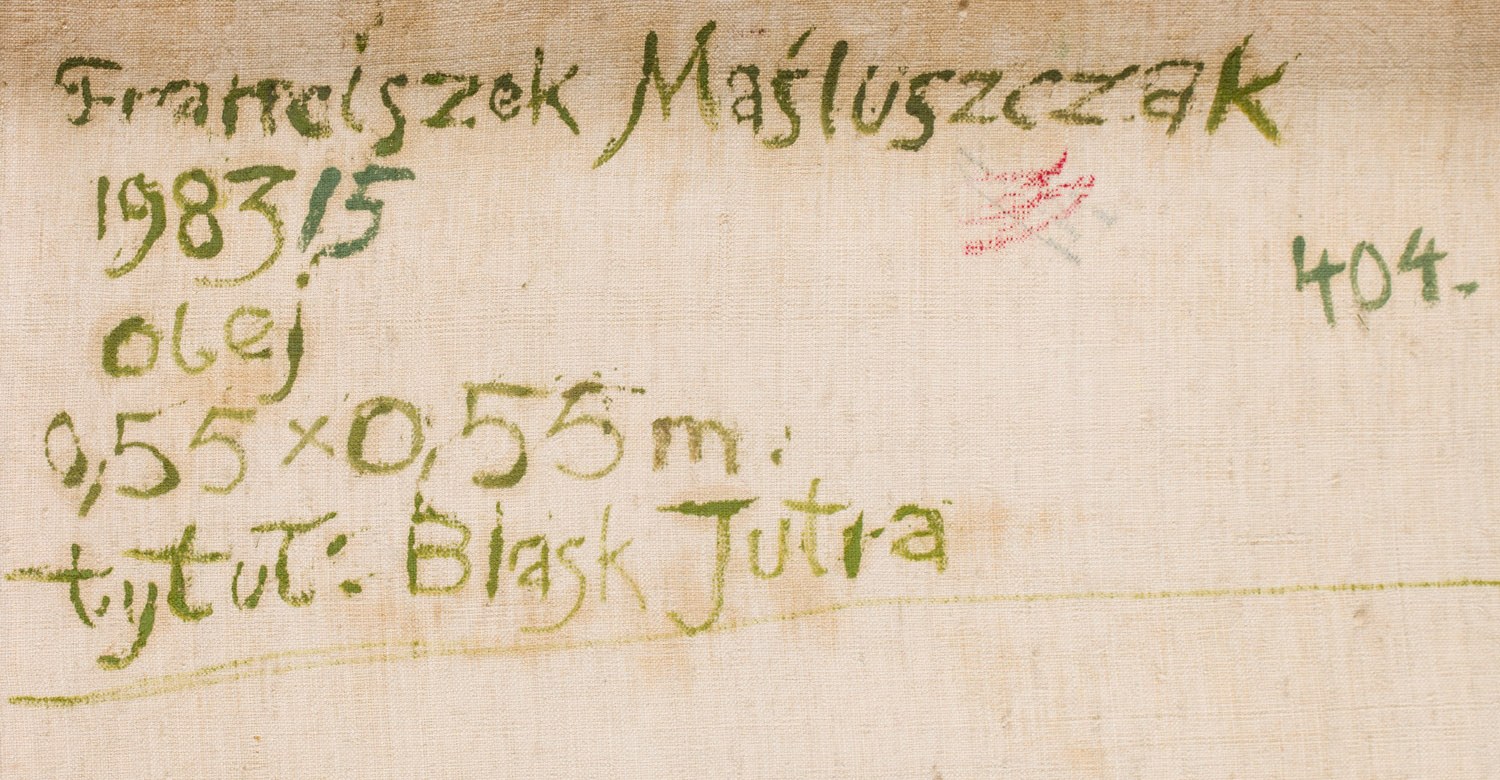 Franciszek Maśluszczak
1983/15
404.-
olej
0,55 x 0,55 m.
tytuł: Blask Jutra